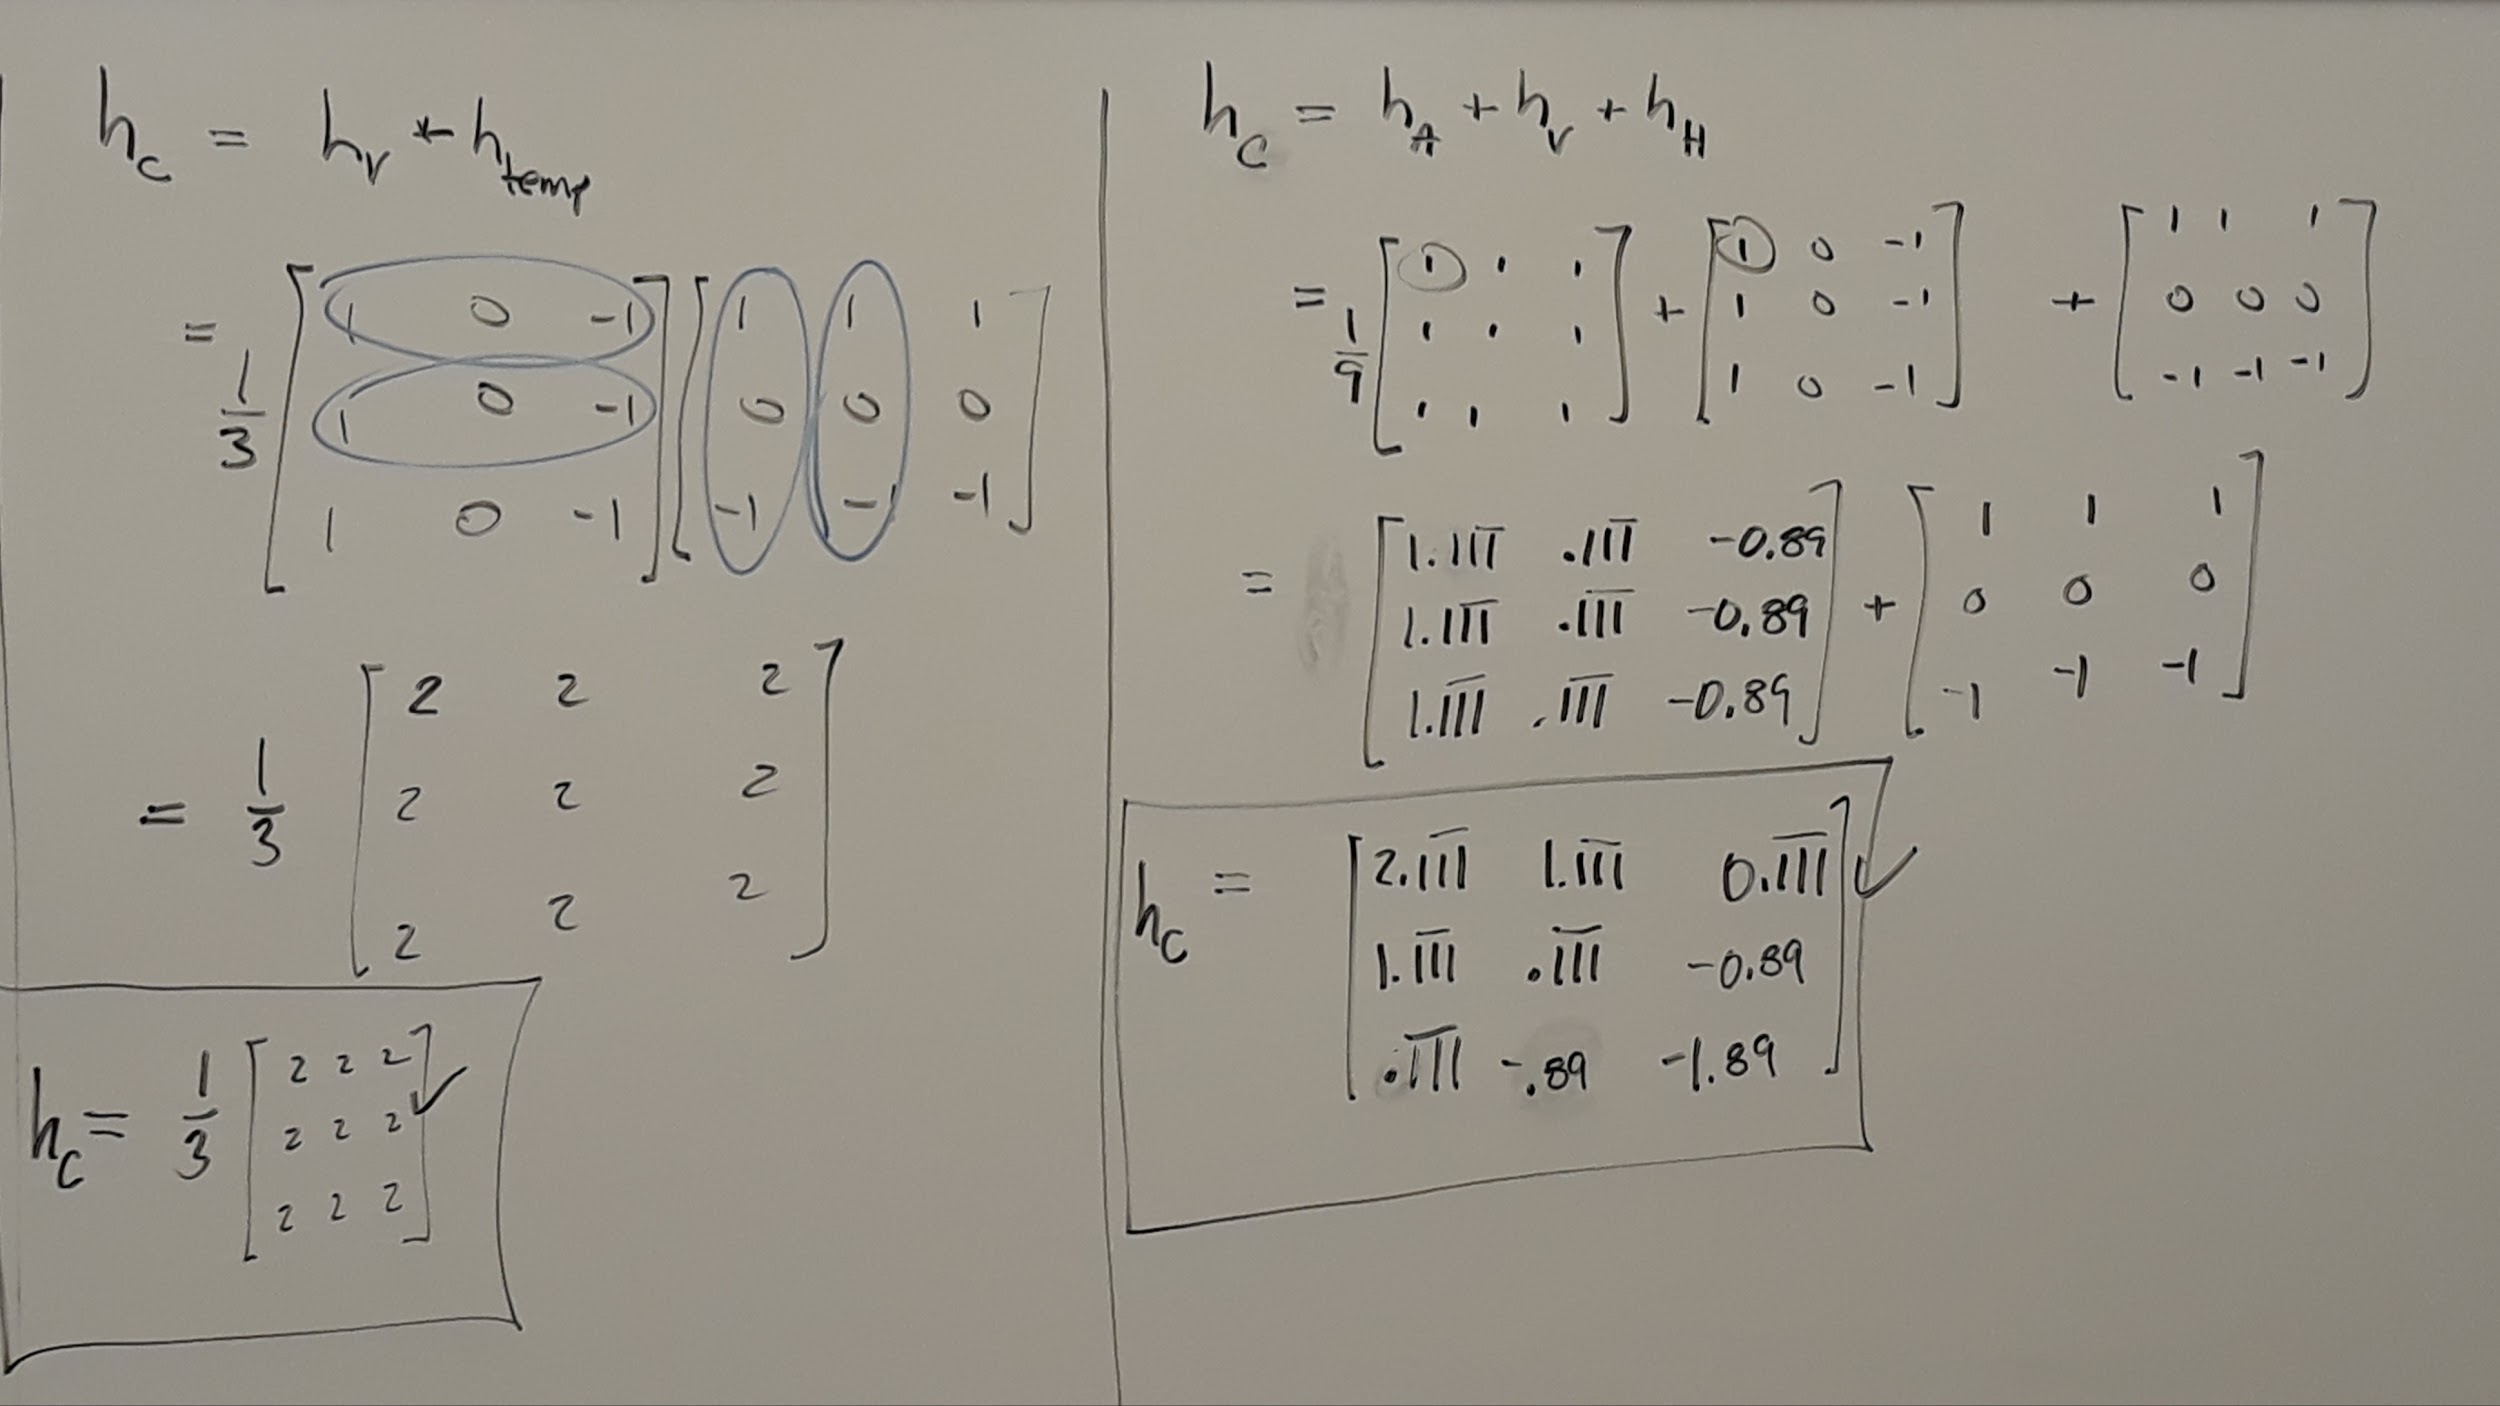 h_C = h_V * h_temp
= 1/3 [1 0 -1; 1 0 -1; 1 0 -1] [1 1 1; 0 0 0; -1 -1 -1]
= 1/3 [2 2 2; 2 2 2; 2 2 2]
h_C = 1/3 [2 2 2; 2 2 2; 2 2 2] ✓
h_C = h_A + h_V + h_H
= 1/9 [1 1 1; 1 1 1; 1 1 1] + [1 0 -1; 1 0 -1; 1 0 -1] + [1 1 1; 0 0 0; -1 -1 -1]
= [1.1̅1̅1̅ .1̅1̅1̅ -0.89; 1.1̅1̅1̅ .1̅1̅1̅ -0.89; 1.1̅1̅1̅ .1̅1̅1̅ -0.89] + [1 1 1; 0 0 0; -1 -1 -1]
h_C = [2.1̅1̅1̅ 1.1̅1̅1̅ 0.1̅1̅1̅; 1.1̅1̅1̅ .1̅1̅1̅ -0.89; .1̅1̅1̅ -.89 -1.89] ✓